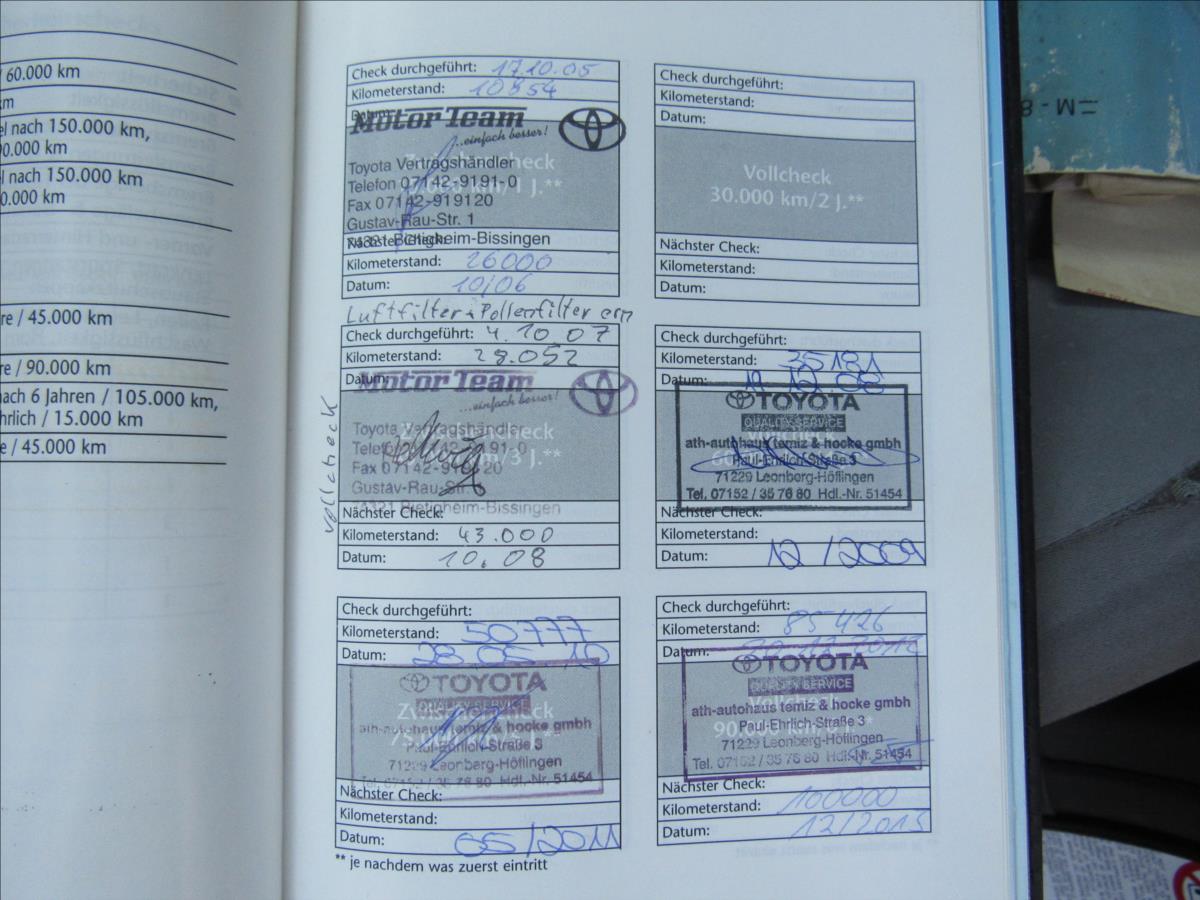 / 60.000 km
km
el nach 150.000 km,
90.000 km
el nach 150.000 km
0.000 km
re / 45.000 km
re / 90.000 km
nach 6 Jahren / 105.000 km,
hrlich / 15.000 km
e / 45.000 km
Check durchgeführt: 17.10.05
Kilometerstand: 10854
Datum:
Motor Team
...einfach besser!
Zwischencheck
Toyota Vertragshändler
Telefon 07142-9191-0
km/1 J.**
Fax 07142-919120
Gustav-Rau-Str. 1
74321 Bietigheim-Bissingen
Nächster Check:
Kilometerstand: 26000
Datum: 10/06
Check durchgeführt:
Kilometerstand:
Datum:
Vollcheck
30.000 km/2 J.**
Nächster Check:
Kilometerstand:
Datum:
Luftfilter + Pollenfilter ern
Check durchgeführt: 4.10.07
Kilometerstand: 28.052
Datum:
Vollcheck
Motor Team
...einfach besser!
Zwischencheck
Toyota Vertragshändler
Telefon 07142-9191-0
km/3 J.**
Fax 07142-919120
Gustav-Rau-Str.
74321 Bietigheim-Bissingen
Nächster Check:
Kilometerstand: 43.000
Datum: 10.08
Check durchgeführt:
Kilometerstand: 35181
Datum: 11 12 08
TOYOTA
QUALITY SERVICE
ath-autohaus temiz & hocke gmbh
Paul-Ehrlich-Straße 3
71229 Leonberg-Höfingen
Tel. 07152 / 35 76 80 Hdl.-Nr. 51454
Nächster Check:
Kilometerstand:
Datum: 12/2009
Check durchgeführt:
Kilometerstand: 50777
Datum: 28 05 10
TOYOTA
QUALITY SERVICE
Zwischencheck
ath-autohaus temiz & hocke gmbh
Paul-Ehrlich-Straße 3
71229 Leonberg-Höfingen
Tel. 07152 / 35 76 80 Hdl.-Nr. 51454
Nächster Check:
Kilometerstand:
Datum: 05/2011
Check durchgeführt:
Kilometerstand: 85426
Datum: 20.12.2012
TOYOTA
QUALITY SERVICE
Vollcheck
ath-autohaus temiz & hocke gmbh
90.000
Paul-Ehrlich-Straße 3
71229 Leonberg-Höfingen
Tel. 07152 / 35 76 80 Hdl.-Nr. 51454
Nächster Check:
Kilometerstand: 100000
Datum: 12/2013
** je nachdem was zuerst eintritt